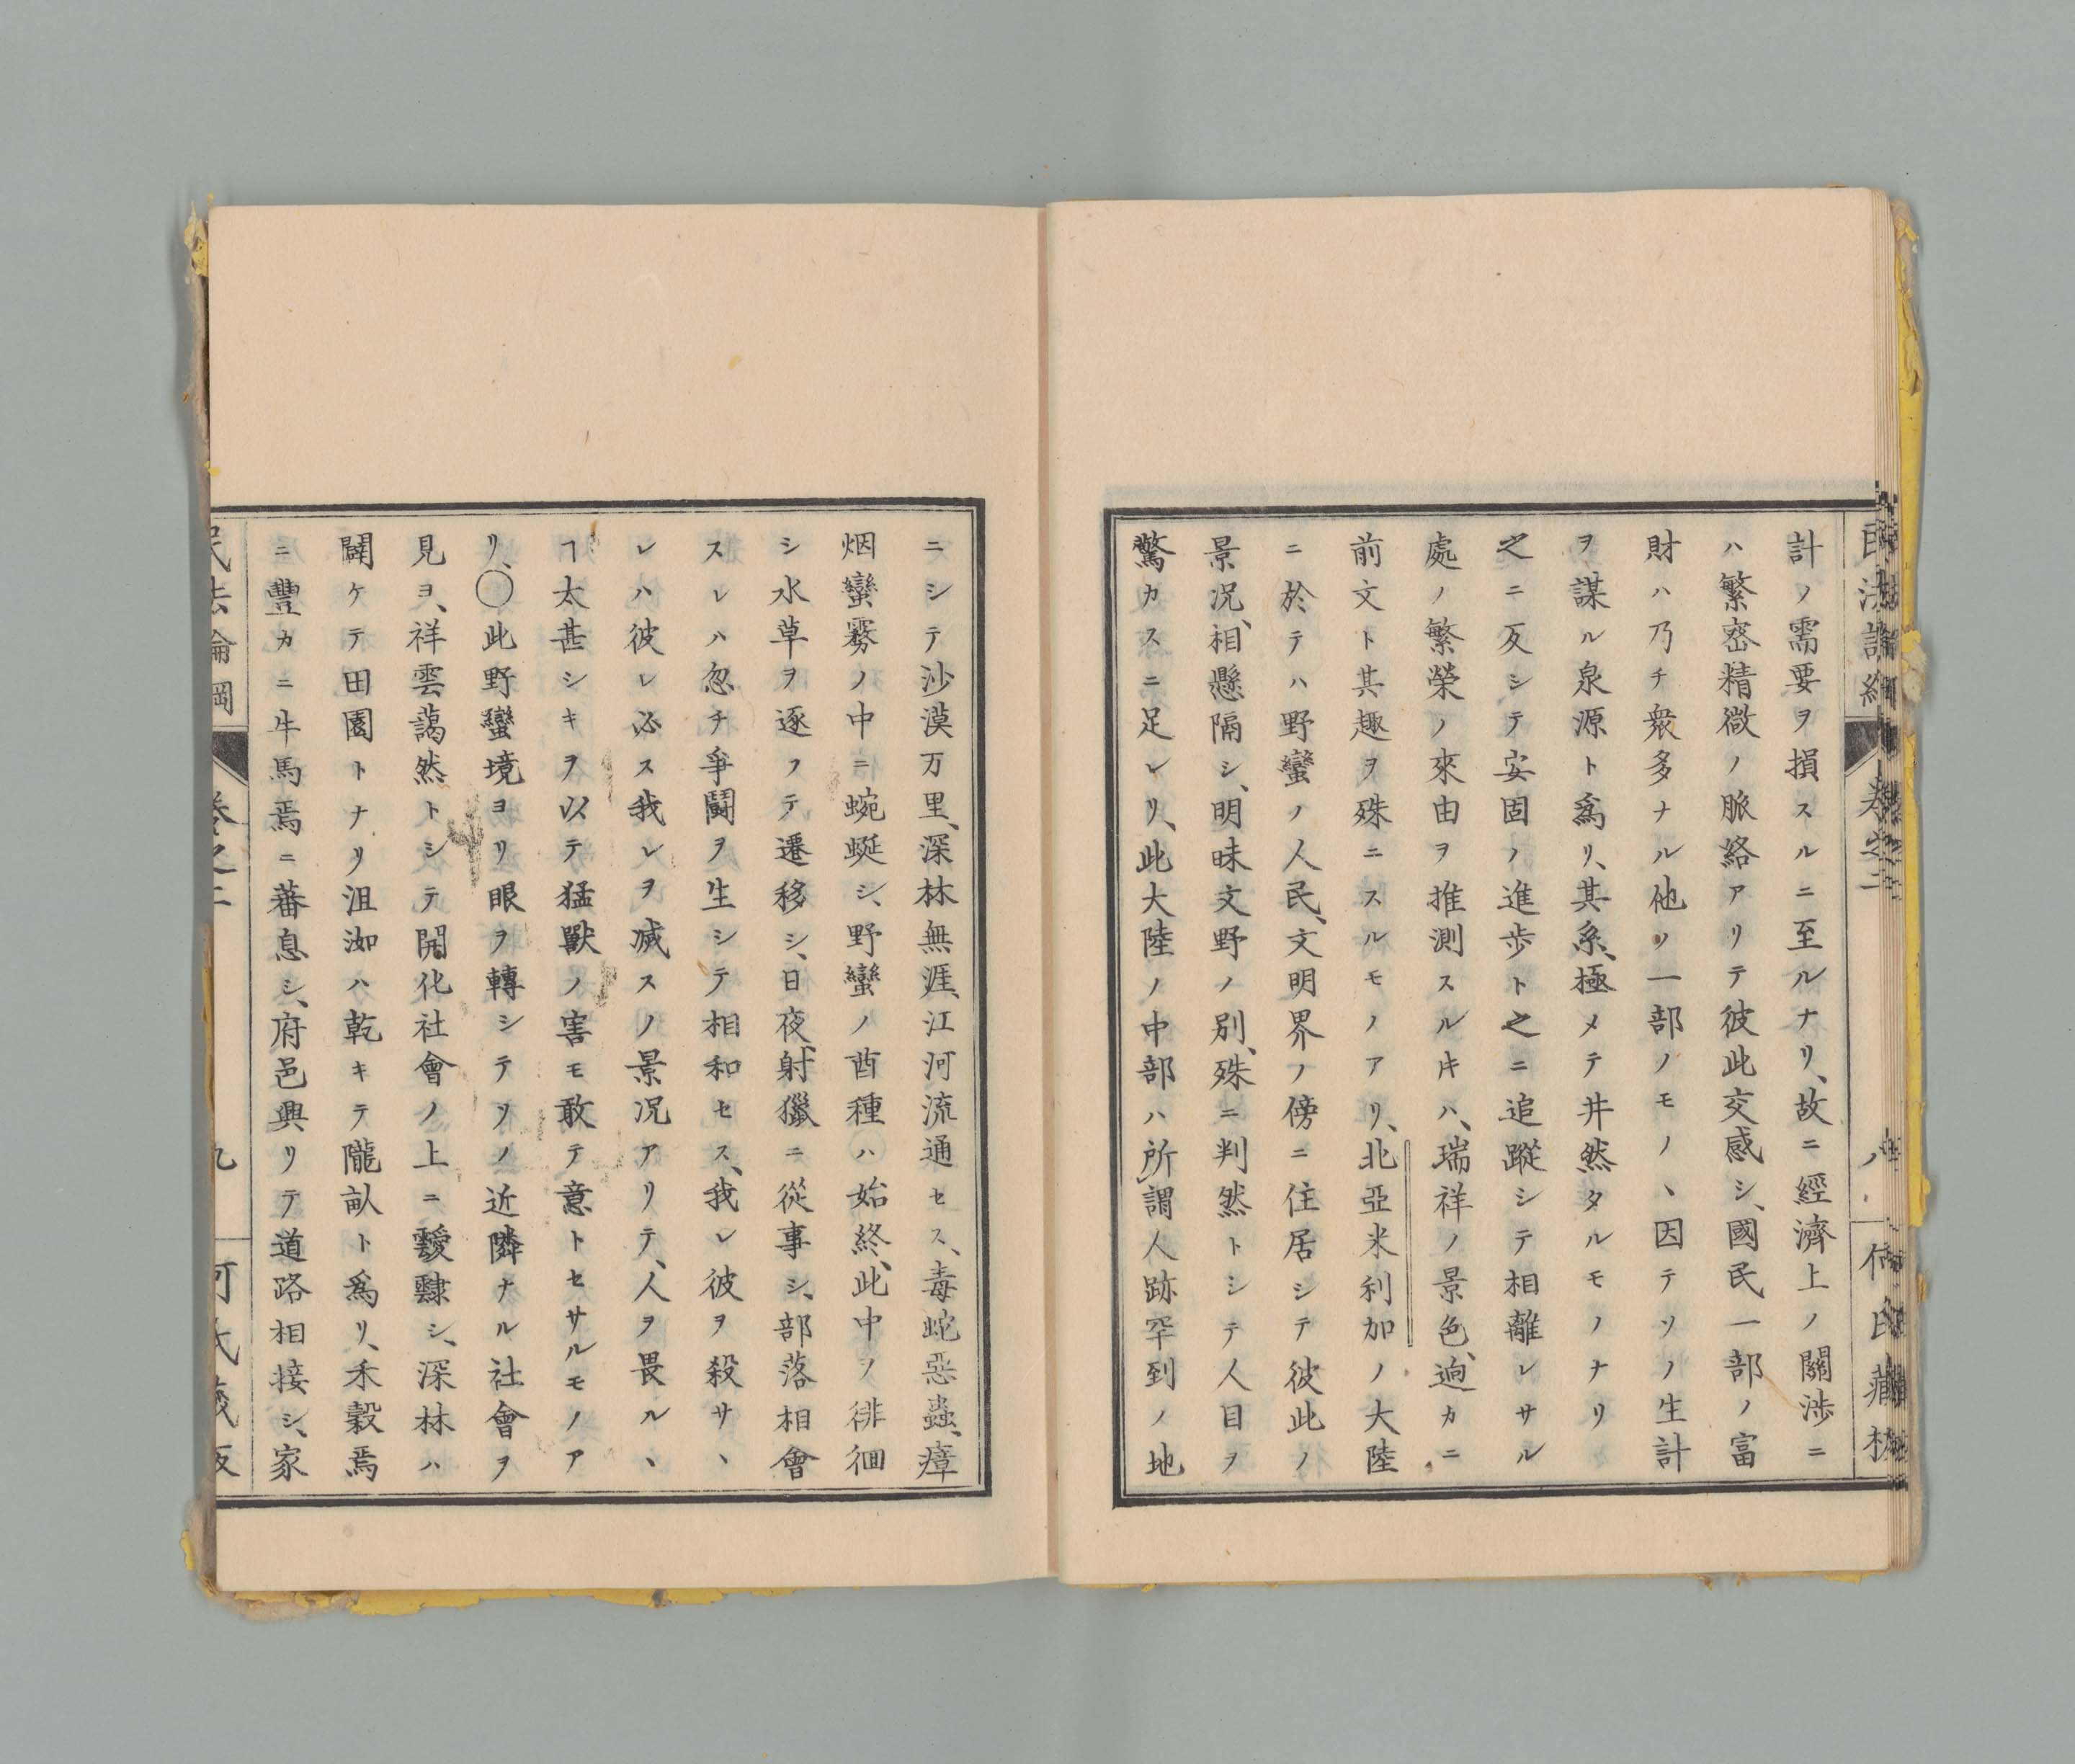 計ノ需要ヲ損スルニ至ルナリ、故ニ經濟上ノ關渉ニ
ハ繁宻精微ノ脈絡アリテ彼此交感シ、國民一部ノ富
財ハ乃チ衆多ナル他ノ一部ノモノヽ因テソノ生計
ヲ謀ル泉源ト爲リ、其系、極メテ井然タルモノナリ
之ニ反シテ安固ノ進歩ト之ニ追蹤シテ相離レサル
處ノ繁榮ノ來由ヲ推測スルキハ、瑞祥ノ景色、逈カニ
前文ト其趣ヲ殊ニスルモノアリ、北亞米利加ノ大陸
ニ於テハ野蠻ノ人民、文明界ノ傍ニ住居シテ彼此ノ
景况、相懸隔シ、明昧文野ノ別、殊ニ判然トシテ人目ヲ
驚カスニ足レリ、此大陸ノ中部ハ所謂人跡罕到ノ地
ニシテ沙漠万里、深林無涯、江河流通セス、毒蛇惡蟲、瘴
烟蠻霧ノ中ニ蜿蜒シ、野蠻ノ酋種ハ始終、此中ヲ徘徊
シ水草ヲ逐フテ遷移シ、日夜、射獵ニ從事シ、部落相會
スレハ忽チ爭鬪ヲ生シテ相和セス、我レ彼ヲ殺サヽ
レハ彼レ必ス我レヲ滅スノ景况アリテ、人ヲ畏ルヽ
ヿ太甚シキヲ以テ猛獸ノ害モ敢テ意トセサルモノア
リ、〇此野蠻境ヨリ眼ヲ轉シテソノ近隣ナル社會ヲ
見ヨ、祥雲藹然トシテ開化社會ノ上ニ靉靆シ、深林ハ
闢ケテ田園トナリ沮洳ハ乾キテ隴畝ト爲リ、禾穀焉
ニ豐カニ牛馬焉ニ蕃息シ、府邑興リテ道路相接シ、家
民法論綱
卷之二
九
何氏藏板